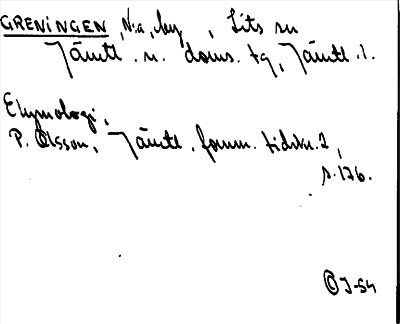 GRENINGEN, N:a, by, Lits sn
Jämtl. n. doms. tg, Jämtl. l.
Etymologi,
P. Olsson, Jämtl. fornm. tidskr. 2,
s. 176.
J-54